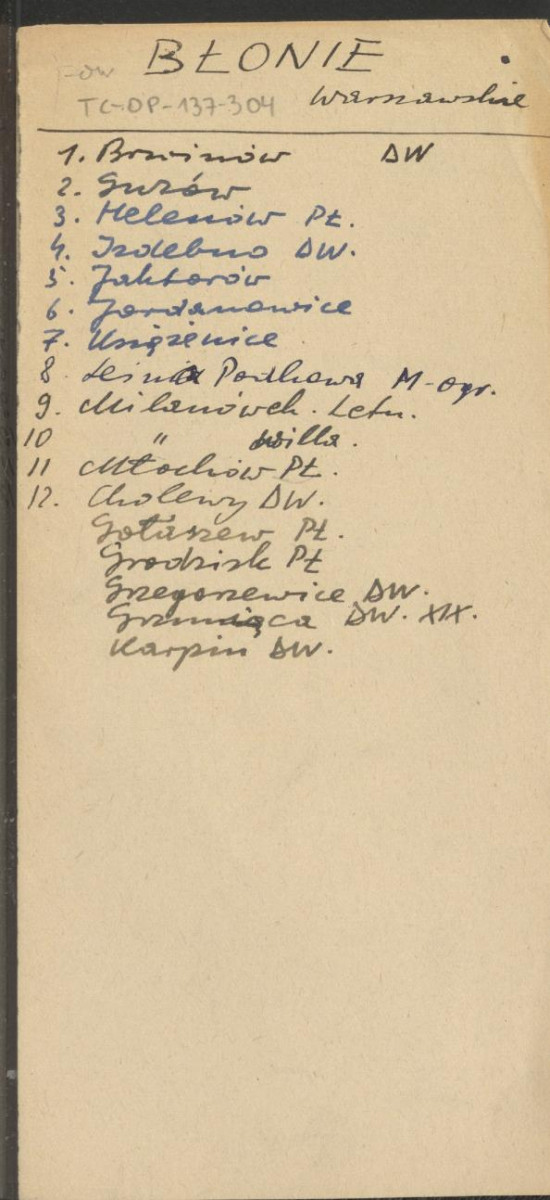 BŁONIE
TC-DP-137-304 Warszawskie
1. Brwinów DW
2. Guzów
3. Helenów PŁ.
4. Izdebno DW.
5. Jaktorów
6. Jordanowice
7. Książenice
8. Leśna Podkowa M-ogr.
9. Milanówek. Letn.
10 " willa.
11 Młochów PŁ.
12. Cholewy DW.
Gołaszew PŁ.
Grodzisk PŁ
Grzegorzewice DW.
Grzmiąca DW. XIX.
Karpin DW.